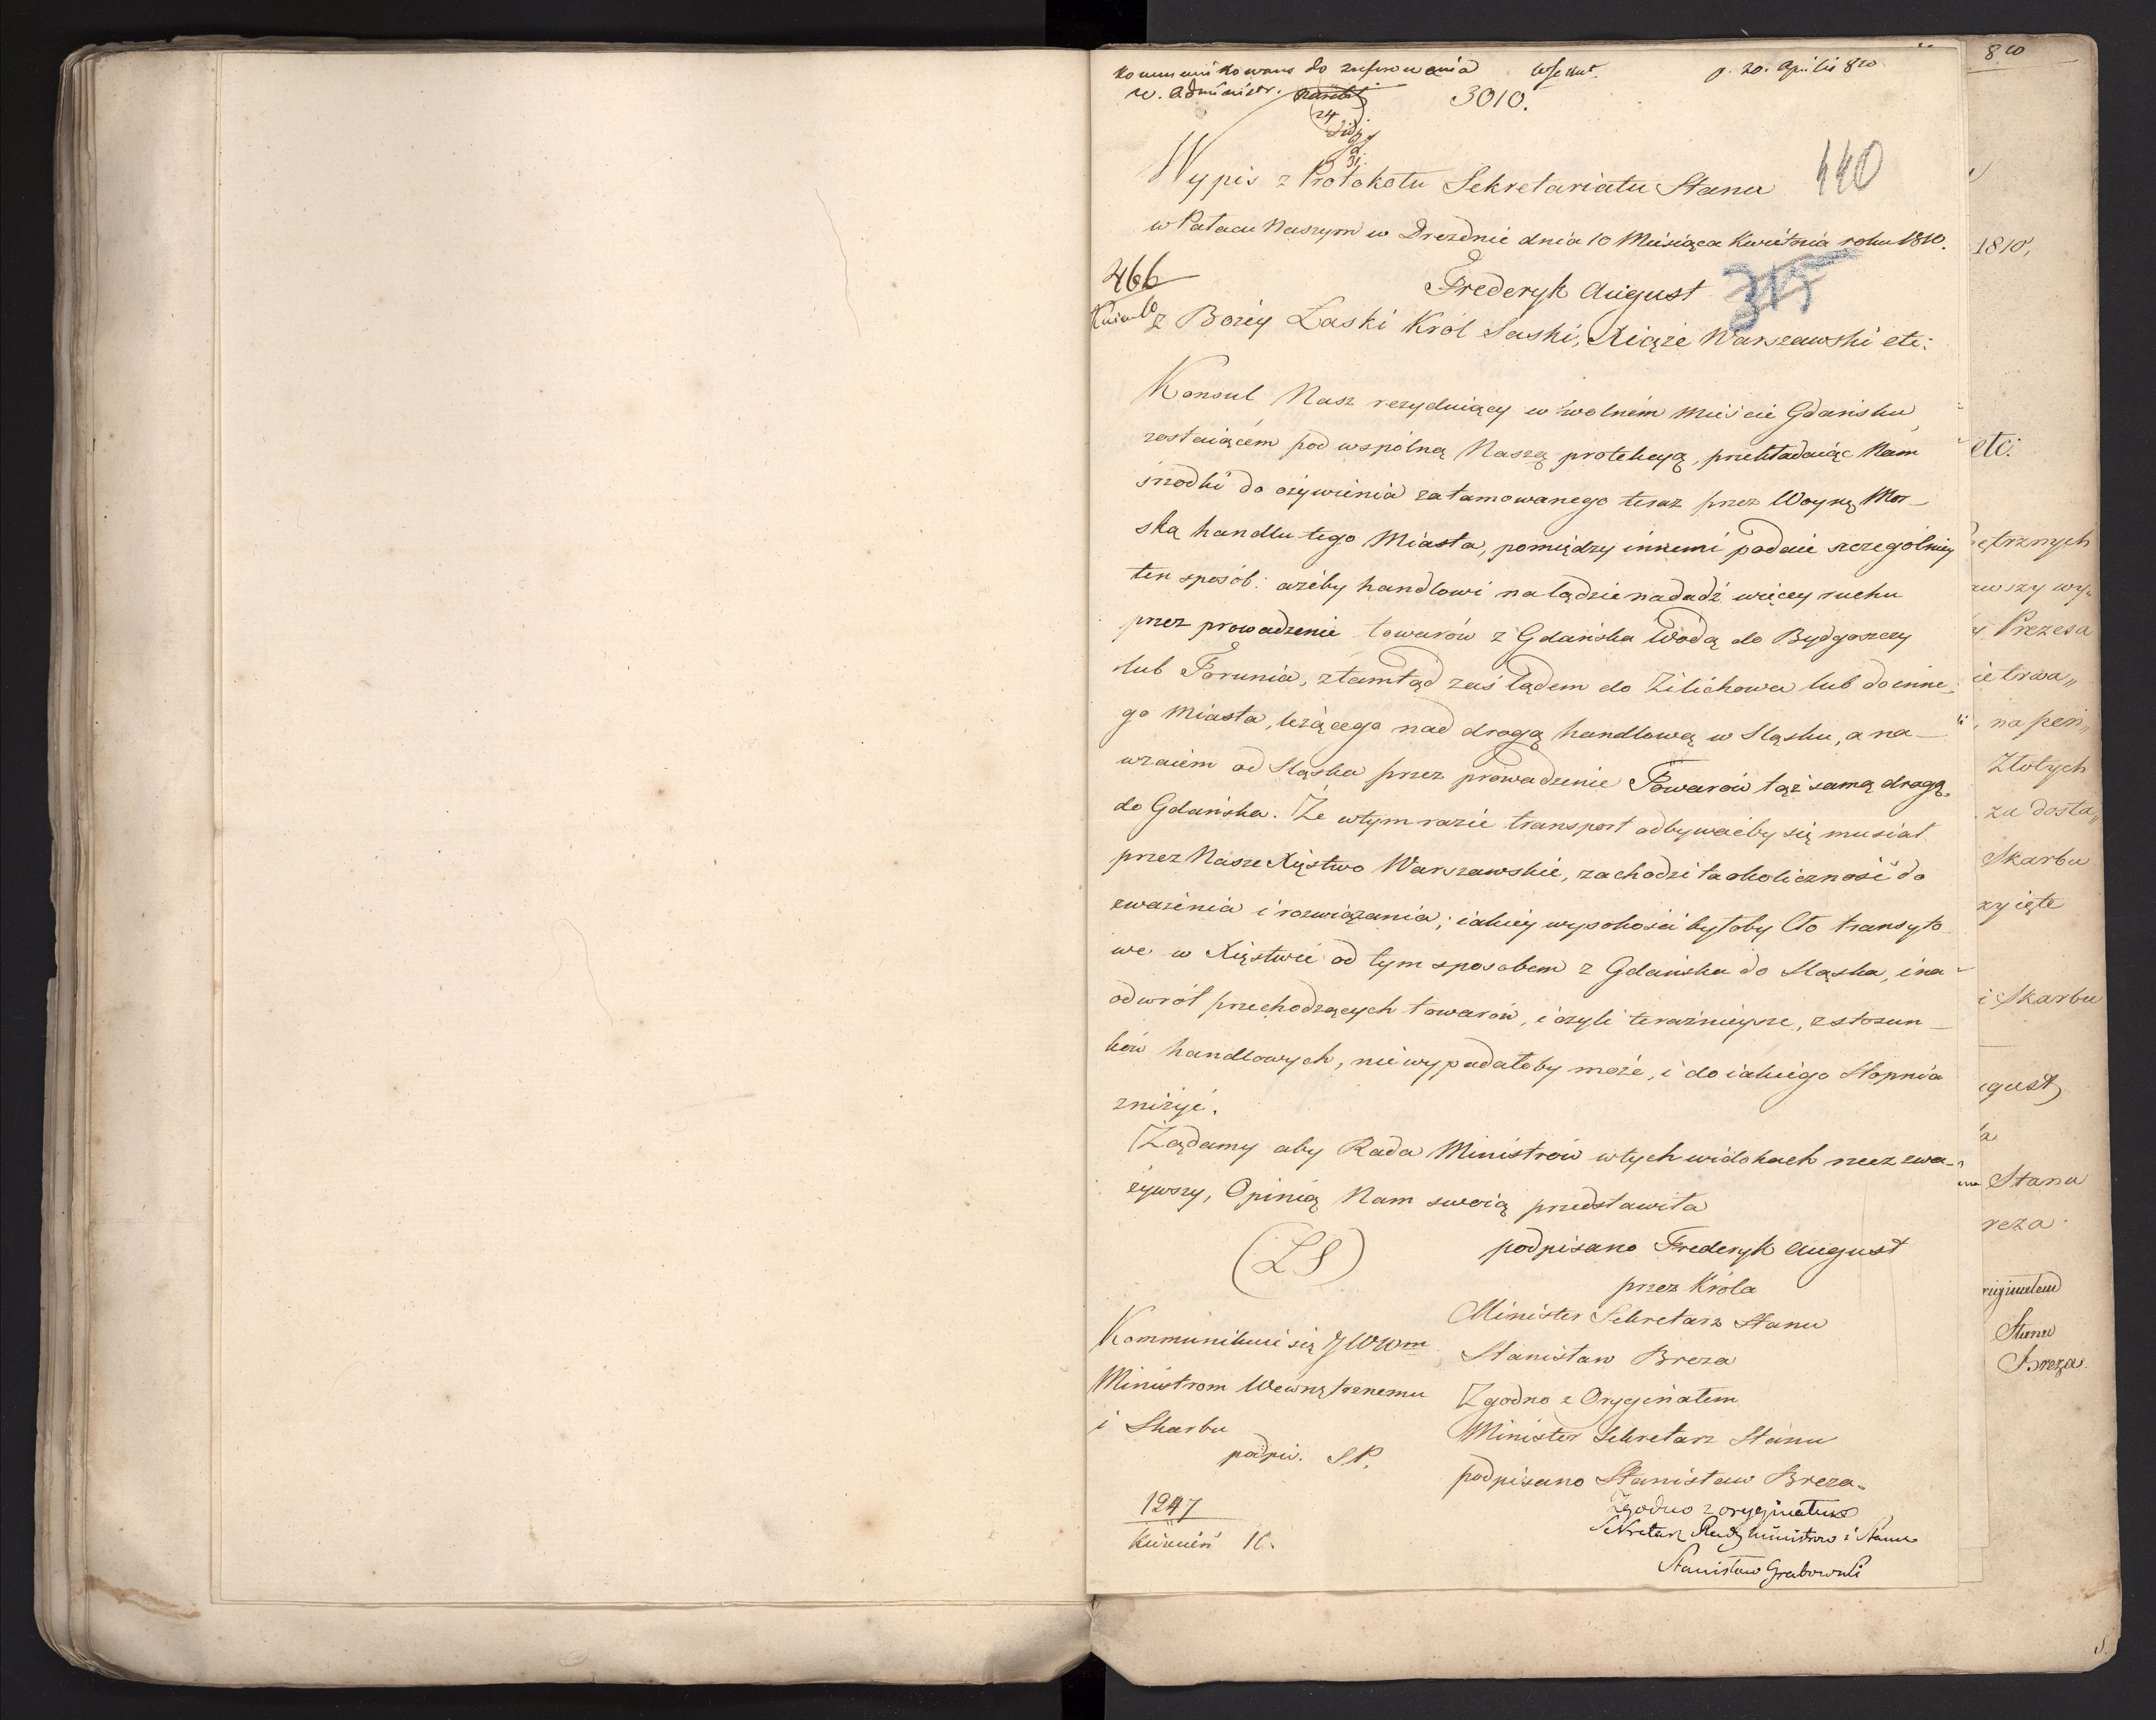 kommunikowano do zreferowania
w. Adminisr.
p. 20. Aprilis 810
3010.
24
440
Wypis z Protokołu Sekretariatu Stanu
w Pałacu Naszym w Dreźdnie dnia 10 Miesiąca Kwietnia roku 1810.
466
Fryderyk August
315
z Bożey Łaski Król Saski, Xiąże Warszawski etc:
Konsul Nasz rezyduiący w wolném mieście Gdańsku,
zostaiącém pod wspólną Naszą protekcyą, przekładaiąc Nam
śrzodki do ożywienia zatamowanego teraz przez Woynę Mor-
ską handlu tego Miasta, pomiędzy innemi podaie szczegolniey
ten sposób: ażeby handlowi na lądzie nadadź więcey ruchu
przez prowadzenie towarów z Gdańska Wodą do Bydgoszczy
lub Torunia, ztamtąd zaś lądem do Zilichowa lub do inne-
go Miasta, leżącego nad drogą handlową w Sląsku, a na-
wzaiem od Sląska przez prowadzenie Towarów tąż samą drogą
do Gdańska. Że w tym razie transport odbywaćby się musiał
przez Nasze Xięstwo Warszawskie, zachodzi ta okoliczność do
zważenia i rozwiązania; iakiey wysokości byłoby Cło transyto
we w Xięstwie od tym sposobem z Gdańska do Sląska, i na-
odwrót przechodzących towarów, i czyli teraźnieysze, z stosun-
ków handlowych, nie wypadałoby może, i do iakiego stopnia
zniżyć.
Żądamy aby Rada Ministrów w tych widokach rzecz zwa-
żywszy, Opinią Nam swoią przedstawiła
(LS)
podpisano Frederyk August
przez Króla
Minister Sekretarz Stanu
Stanisław Breza
Kommunikuie się JWWm
Ministrom Wewnętrznemu
i Skarbu
podpis. S.P.
Zgodno z Oryginałem
Minister Sekretarz Stanu
podpisano Stanisław Breza.
1247
Kwiecień 10.
Zgodno z oryginałem
Sekretarz Rady Ministrów i Stanu
Stanisław Grabowski
810
1810,
etc:
ętrznych
wszy wy„
Prezesa
ie trwa„
na pen„
Złotych
za dosta„
Skarbu
zyięte
i Skarbu
gust
Stanu
reza.
Stanu
Breza.